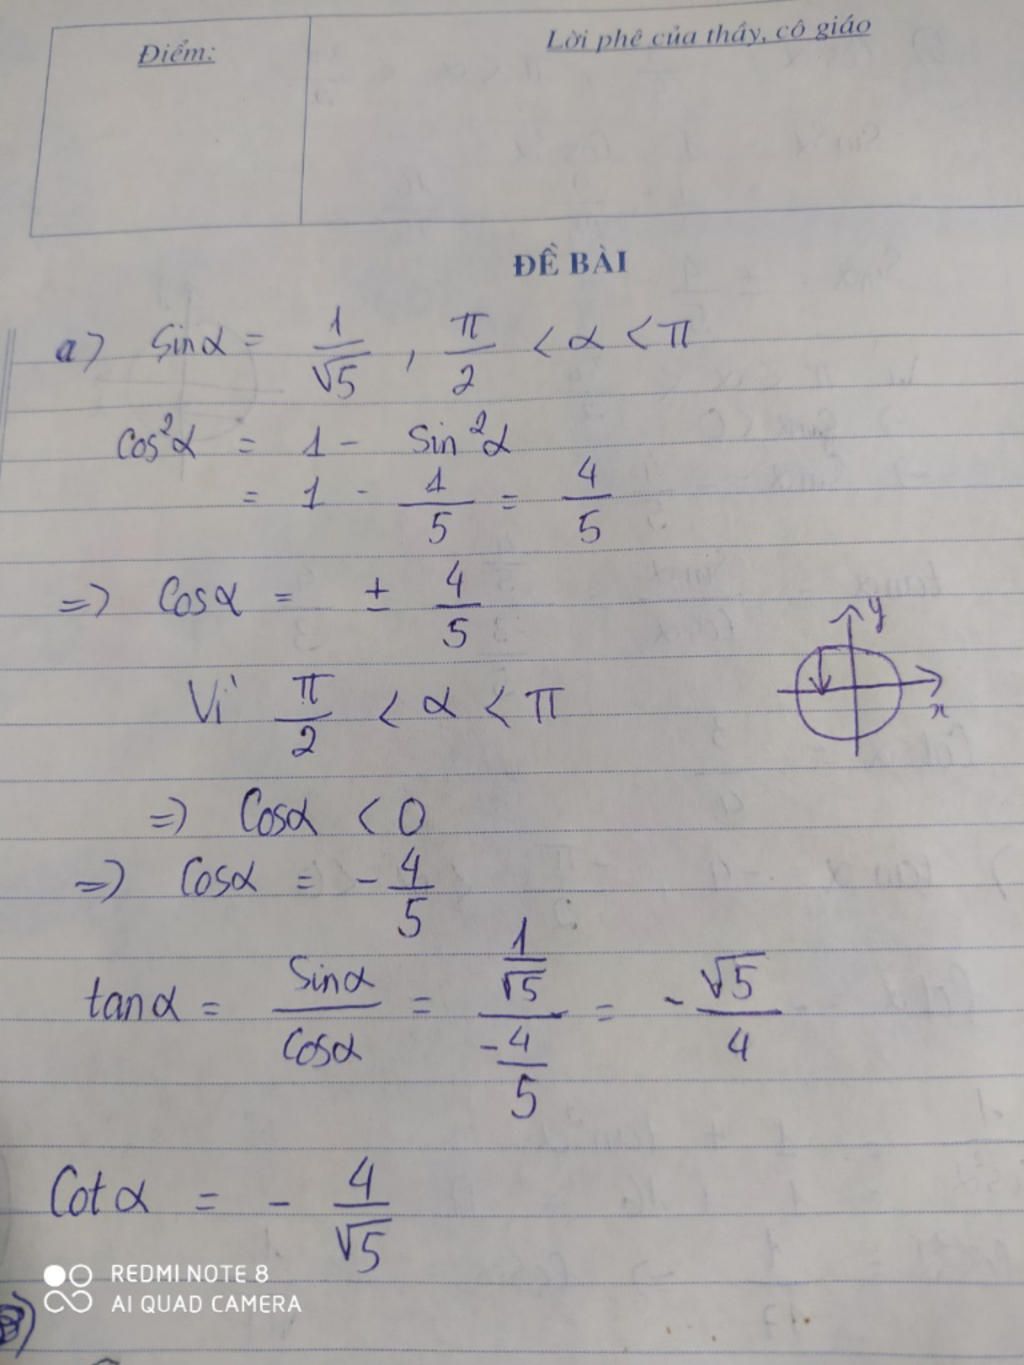 Điểm:
Lời phê của thầy, cô giáo
ĐỀ BÀI
a) Sinα = 1/√5 , π/2 < α < π
Cos²α = 1 - Sin²α
= 1 - 1/5 = 4/5
=> Cosα = ± 4/5
Vì π/2 < α < π
y
x
=> Cosα < 0
=> Cosα = - 4/5
tanα = Sinα/Cosα = (1/√5)/(-4/5) = - √5/4
Cotα = - 4/√5
REDMI NOTE 8
AI QUAD CAMERA